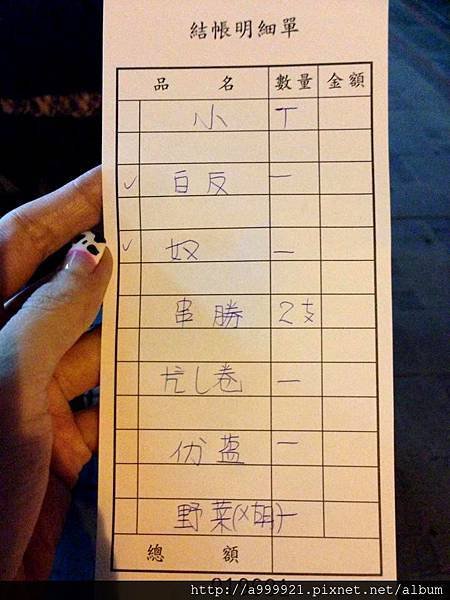 結帳明細單
品名 數量 金額
小 T
✓ 白反 一
✓ 奴 一
串勝 2支
尤し卷 一
份盐 一
野菜(X胡) 一
總額
http://a999921.pixnet.net/album